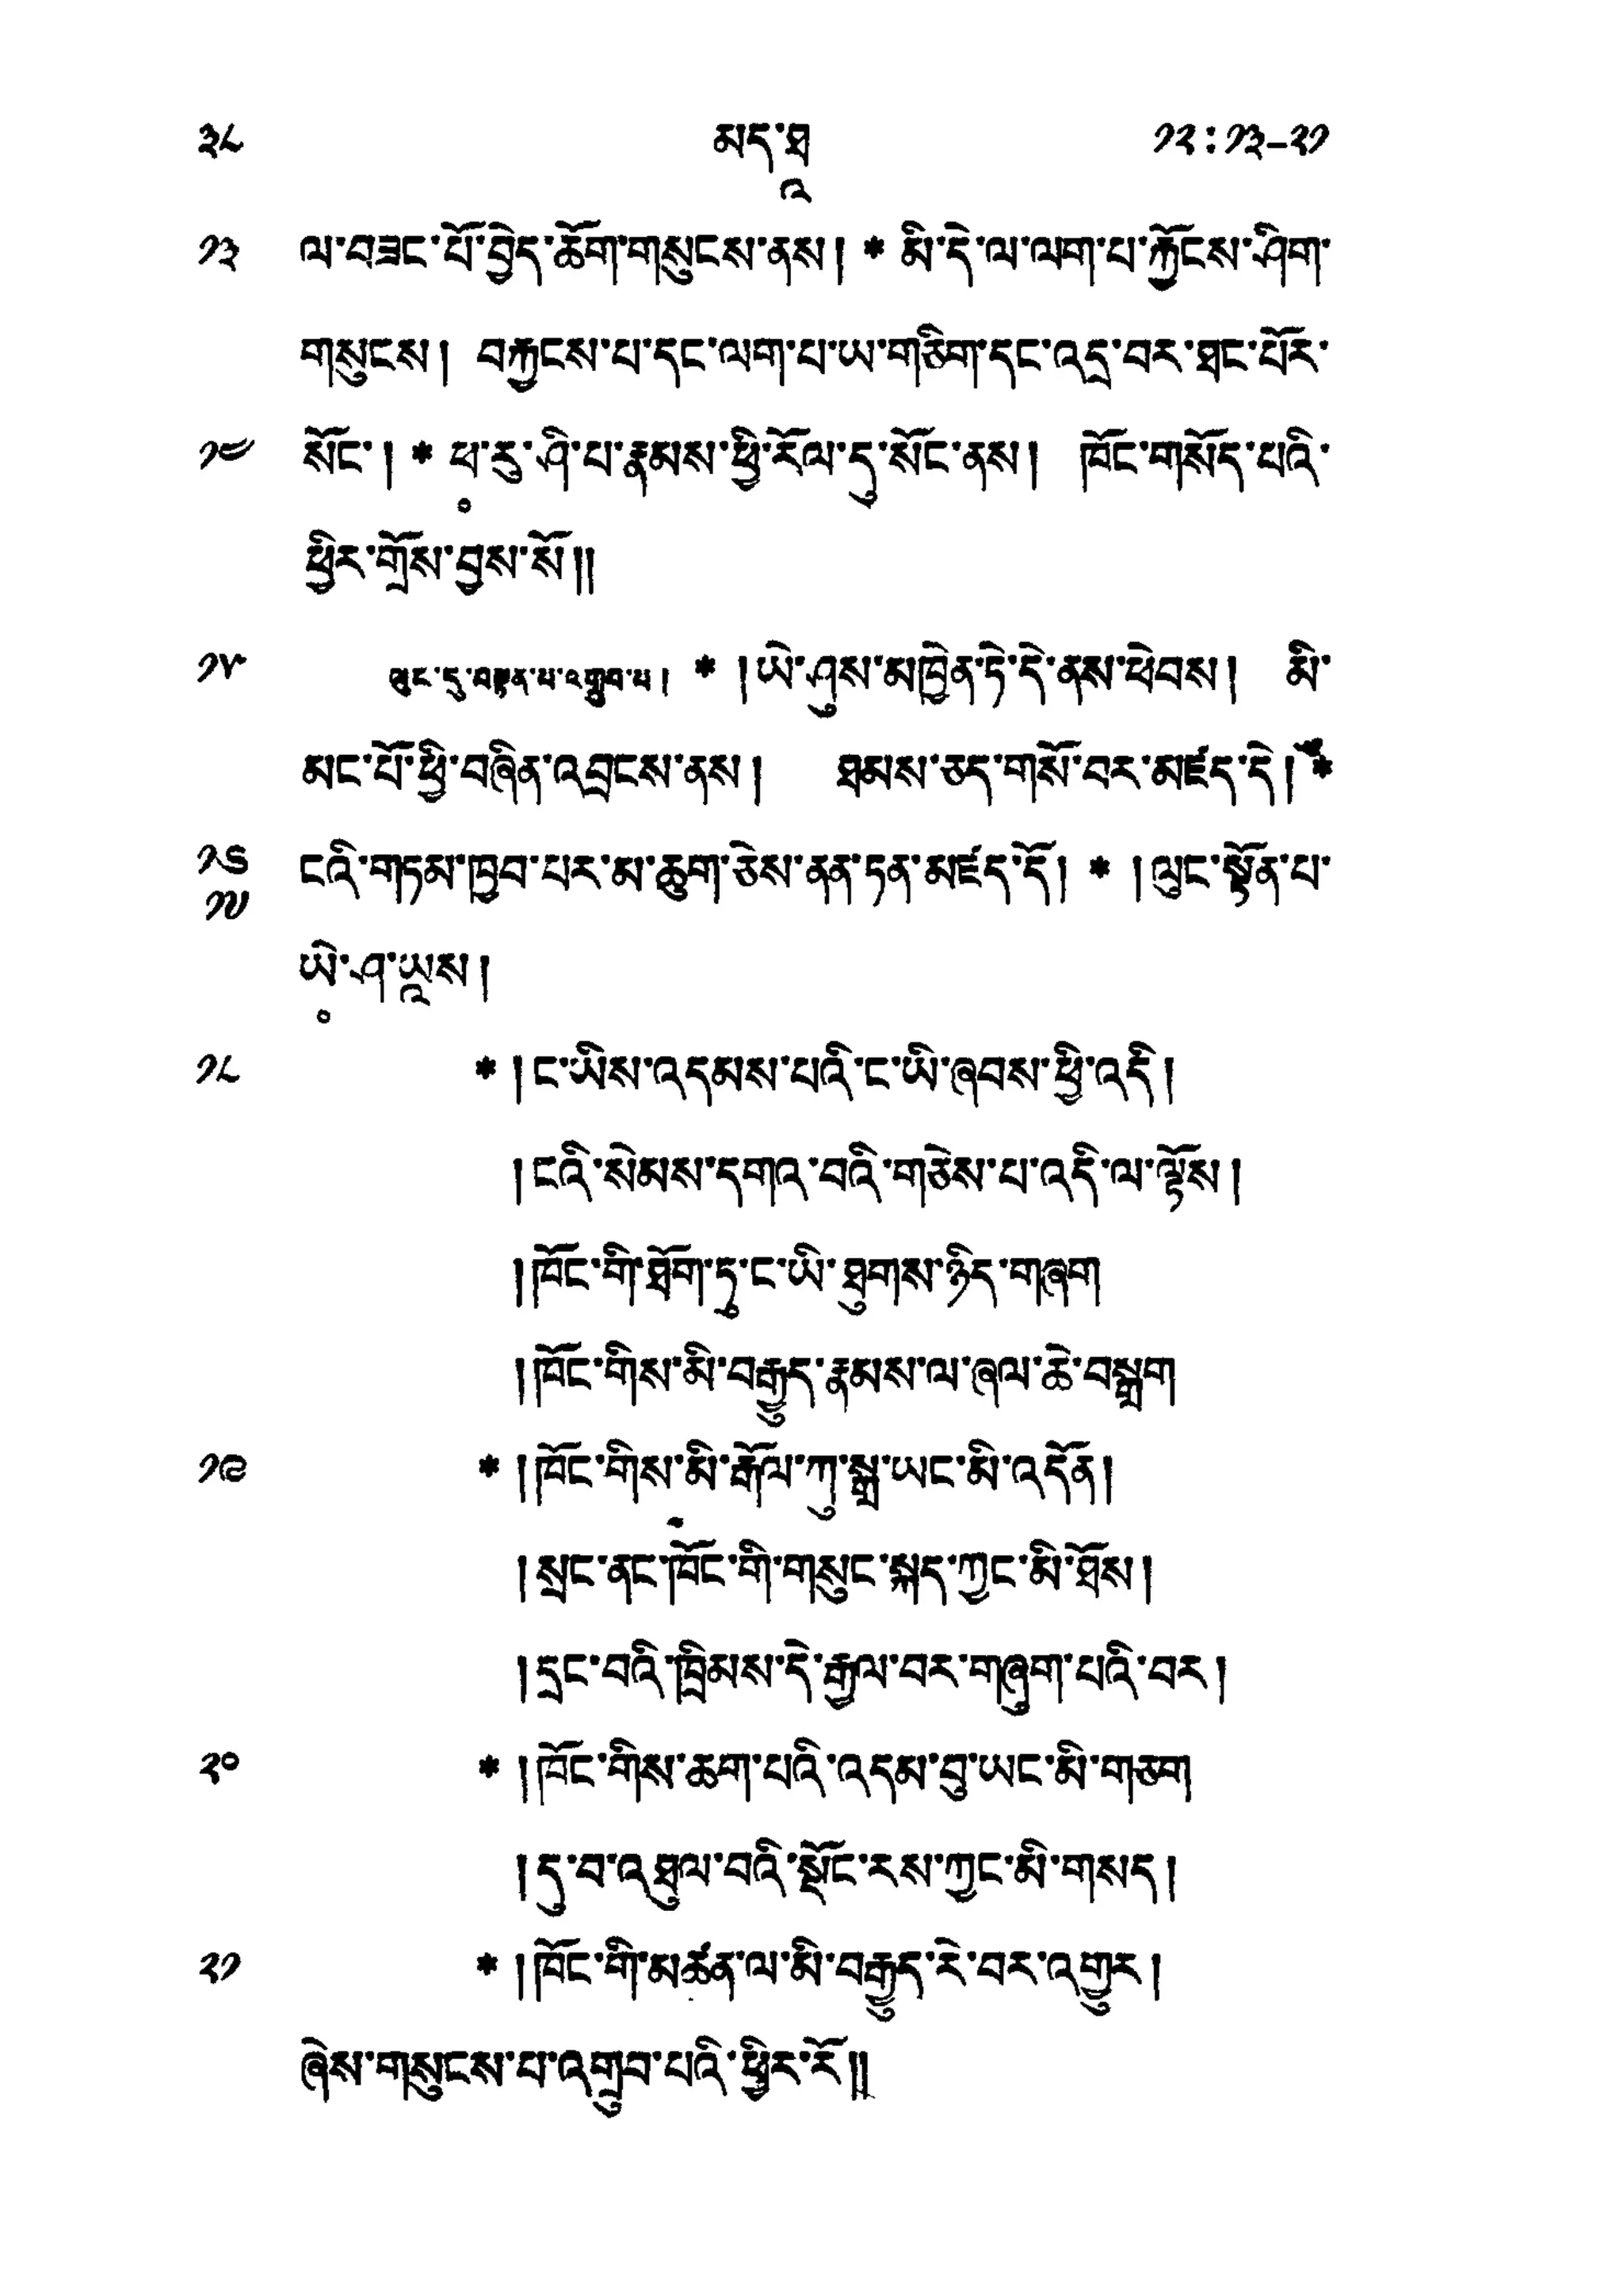 ༣༨ མད་ཐཱ ༡༢:༡༣-༢༡
༡༣ ལ་བཟང་པོ་བྱེད་ཆོག་གསུངས་ནས། * མི་དེ་ལ་ལག་པ་རྐྱོངས་ཤིག་
གསུངས། བརྐྱངས་པ་དང་ལག་པ་ཡ་གཅིག་དང་འདྲ་བར་ཐང་པོར་
༡༤ སོང་། * ཕ༷་རུ་ཤི་པ་རྣམས་ཕྱི་རོལ་དུ་སོང་ནས། ཁོང་གསོད་པའི་
ཕྱིར་གྲོས་བྱས་སོ༎
༡༥ ལུང་དུ་བསྟན་པ་འགྲུབ་པ། * །ཡེ་ཤུས་མཁྱེན་ཏེ་དེ་ནས་ཕེབས། མི་
མང་པོ་ཕྱི་བཞིན་འབྲངས་ནས། ཐམས་ཅད་གསོ་བར་མཛད་དེ། *
༡༦ ངའི་གཏམ་ཁྱབ་པར་མ་ཆུག་ཅེས་ནན་ཏན་མཛད་དོ། * །ལུང་སྟོན་པ་
༡༧ ཡེ༷་ཤ་ཡཱས།
༡༨ * །ང་ཡིས་འདམས་པའི་ང་ཡི་ཞབས་ཕྱི་འདི།
།ངའི་སེམས་དགའ་བའི་གཅེས་པ་འདི་ལ་ལྟོས།
།ཁོང་གི་ཐོག་ཏུ་ང་ཡི་ཐུགས་ཉིད་གཞག
།ཁོང་གིས་མི་བརྒྱུད་རྣམས་ལ་ཞལ་ཆེ་བསྒྲག
༡༩ * །ཁོང་གིས་མི་རྒོལ་ཀུ་སྒྲ་ཡང་མི་འདོན།
།སྲང་ནང་ཁོང་གི་གསུང་སྐད་ཀྱང་མི་ཐོས།
།དྲང་བའི་ཁྲིམས་དེ་རྒྱལ་བར་གཞུག་པའི་བར།
༢༠ * །ཁོང་གིས་ཆག་པའི་འདམ་བུ་ཡང་མི་གཅག
།དུ་བ་འཐུལ་བའི་སྡོང་རས་ཀྱང་མི་གསད།
༢༡ * །ཁོང་གི་མཚན་ལ་མི་བརྒྱུད་རེ་བར་འགྱུར།
ཞེས་གསུངས་པ་འགྲུབ་པའི་ཕྱིར་རོ༎